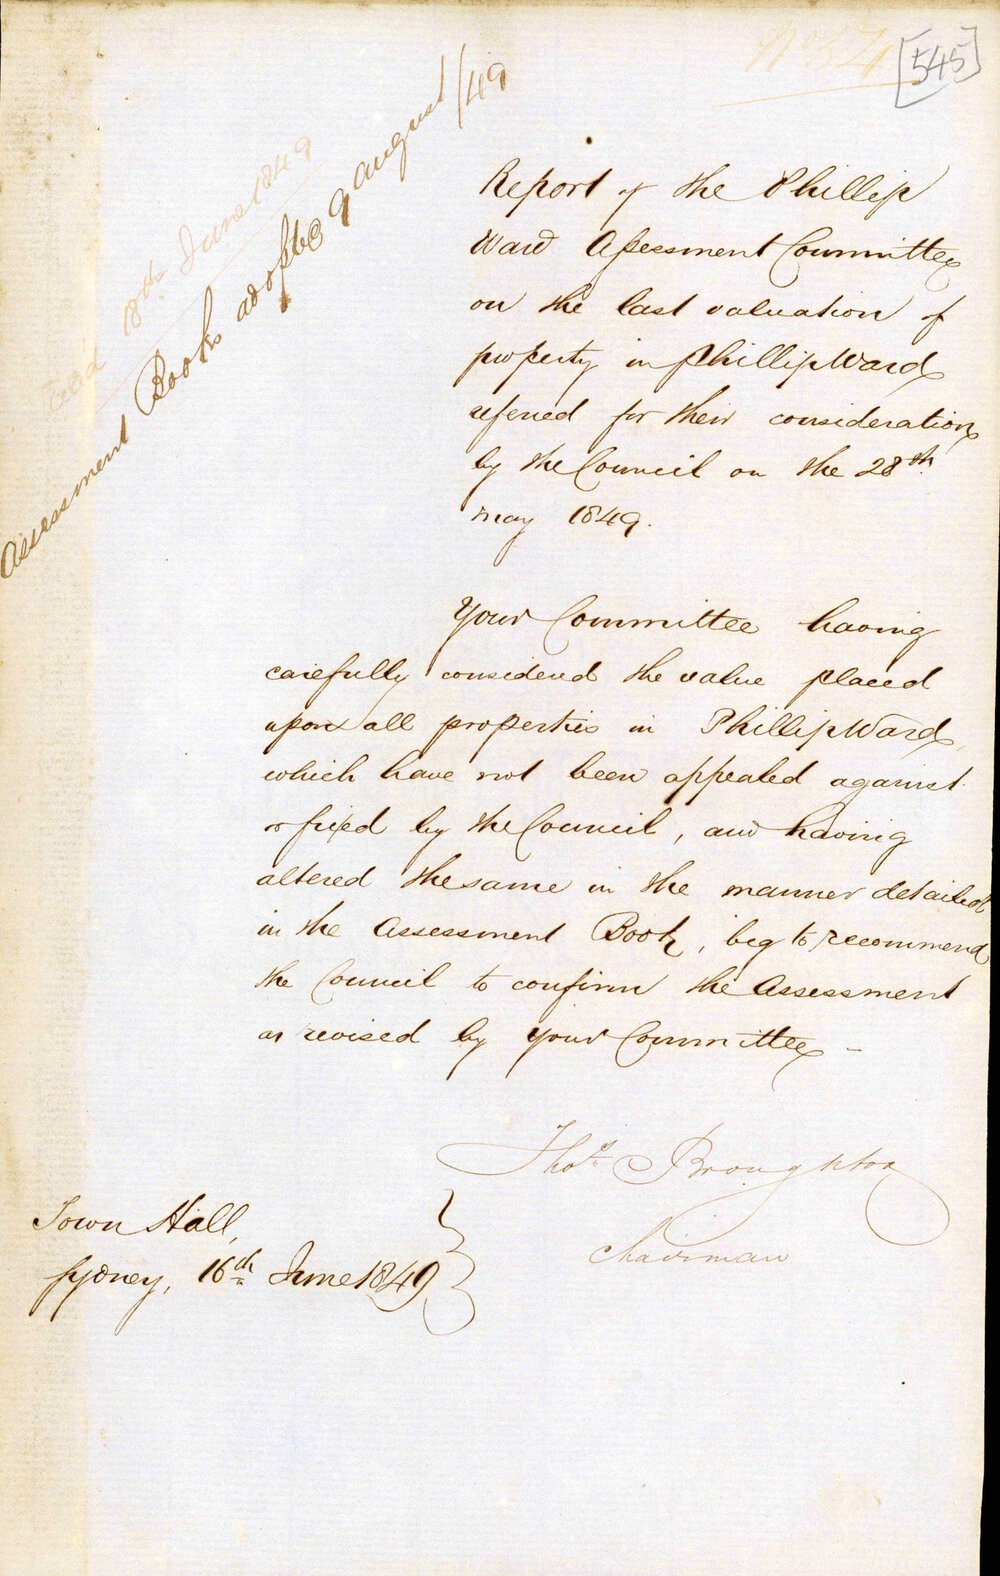 [545]
18th June 1849
Assessment Books adopted 9 August/49
Report of the Phillip
Ward Assessment Committee
on the last valuation of
property in Phillip Ward
referred for their consideration
by the Council on the 28th
May 1849.
Your Committee having
carefully considered the value placed
upon all properties in Phillip Ward,
which have not been appealed against
or fixed by the Council, and having
altered the same in the manner detailed
in the Assessment Book, beg to recommend
the Council to confirm the Assessment
as revised by your Committee –
Thos. Broughton
Chairman
Town Hall,
Sydney, 16th June 1849